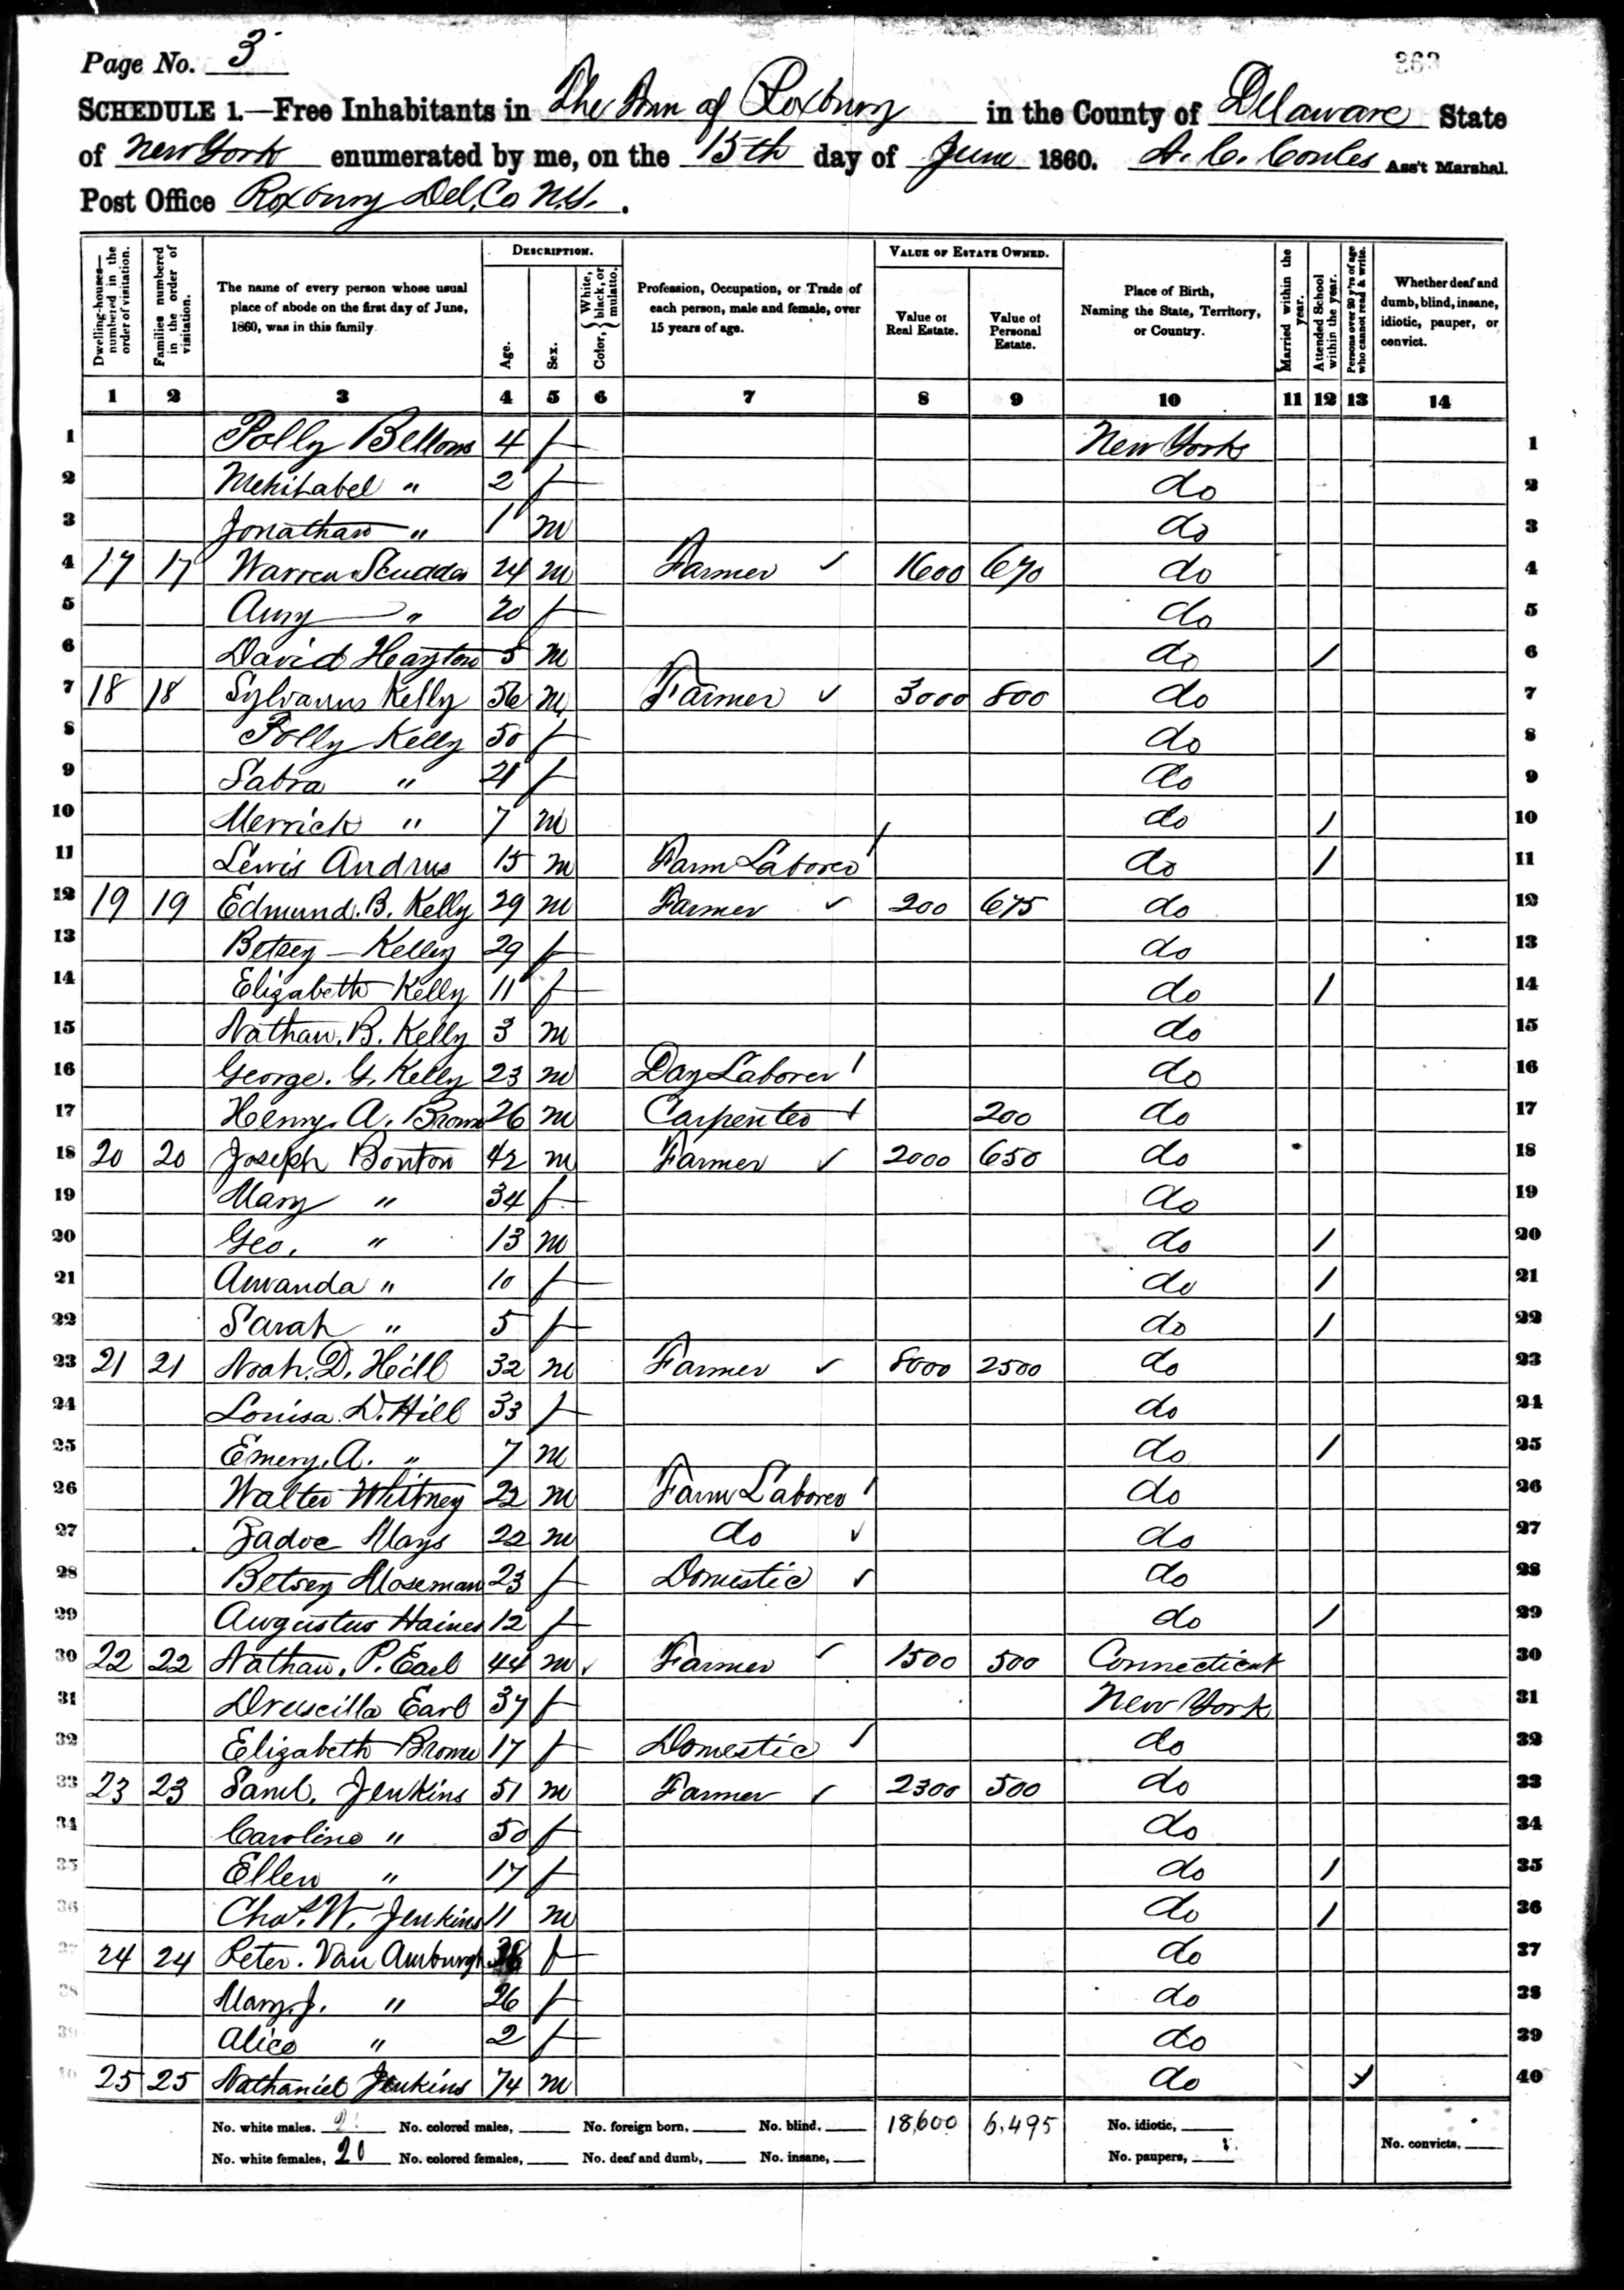 Page No. 3
363
SCHEDULE 1.—Free Inhabitants in The Town of Roxbury in the County of Delaware State
of New York enumerated by me, on the 15th day of June 1860. A. C. Cowles Ass't Marshal.
Post Office Roxbury Del. Co N.Y.
Dwelling-houses—numbered in the order of visitation.
Families numbered in the order of visitation.
The name of every person whose usual place of abode on the first day of June, 1860, was in this family
DESCRIPTION.
Age.
Sex.
Color, { White, black, or mulatto.
Profession, Occupation, or Trade of each person, male and female, over 15 years of age.
VALUE OF ESTATE OWNED.
Value of Real Estate.
Value of Personal Estate.
Place of Birth, Naming the State, Territory, or Country.
Married within the year.
Attended School within the year.
Persons over 20 y'rs of age who cannot read & write.
Whether deaf and dumb, blind, insane, idiotic, pauper, or convict.
1 2 3 4 5 6 7 8 9 10 11 12 13 14
1 Polly Bellows 4 f New York 1
2 Mehitabel " 2 f do 2
3 Jonathan " 1 m do 3
4 17 17 Warren Scudder 24 m Farmer ✓ 1600 670 do 4
5 Amy " 20 f do 5
6 David Hayton 5 m do / 6
7 18 18 Sylvanus Kelly 56 m Farmer ✓ 3000 800 do 7
8 Polly Kelly 50 f do 8
9 Sabra " 21 f do 9
10 Merrick " 7 m do / 10
11 Lewis Andrus 15 m Farm Laborer / do / 11
12 19 19 Edmund. B. Kelly 29 m Farmer ✓ 200 675 do 12
13 Betsey Kelly 29 f do 13
14 Elizabeth Kelly 11 f do / 14
15 Nathan. B. Kelly 3 m do 15
16 George. G. Kelly 23 m Day Laborer / do 16
17 Henry. A. Brown 26 m Carpenter / 200 do 17
18 20 20 Joseph Bouton 42 m Farmer ✓ 2000 650 do 18
19 Mary " 34 f do 19
20 Geo. " 13 m do / 20
21 Amanda " 10 f do / 21
22 Sarah " 5 f do / 22
23 21 21 Noah. D. Hill 32 m Farmer ✓ 8000 2500 do 23
24 Louisa. D. Hill 33 f do 24
25 Emery. A. " 7 m do / 25
26 Walter Whitney 22 m Farm Laborer / do 26
27 Zadoc Mays 22 m do ✓ do 27
28 Betsey Moseman 23 f Domestic ✓ do 28
29 Augustus Haines 12 f do / 29
30 22 22 Nathan. P. Earl 44 m ✓ Farmer ✓ 1500 500 Connecticut 30
31 Druscilla Earl 37 f New York 31
32 Elizabeth Brown 17 f Domestic / do 32
33 23 23 Saml. Jenkins 51 m Farmer ✓ 2300 500 do 33
34 Caroline " 50 f do 34
35 Ellen " 17 f do / 35
36 Chas. W. Jenkins 11 m do / 36
37 24 24 Peter. Van Amburgh f do 37
38 Mary. J. " 26 f do 38
39 Alice " 2 f do 39
40 25 25 Nathaniel Jenkins 74 m do 40
No. white males. No. colored males, No. foreign born, No. blind, 18,600 6,495 No. idiotic,
No. white females, 20 No. colored females, No. deaf and dumb, No. insane, No. paupers, No. convicts,